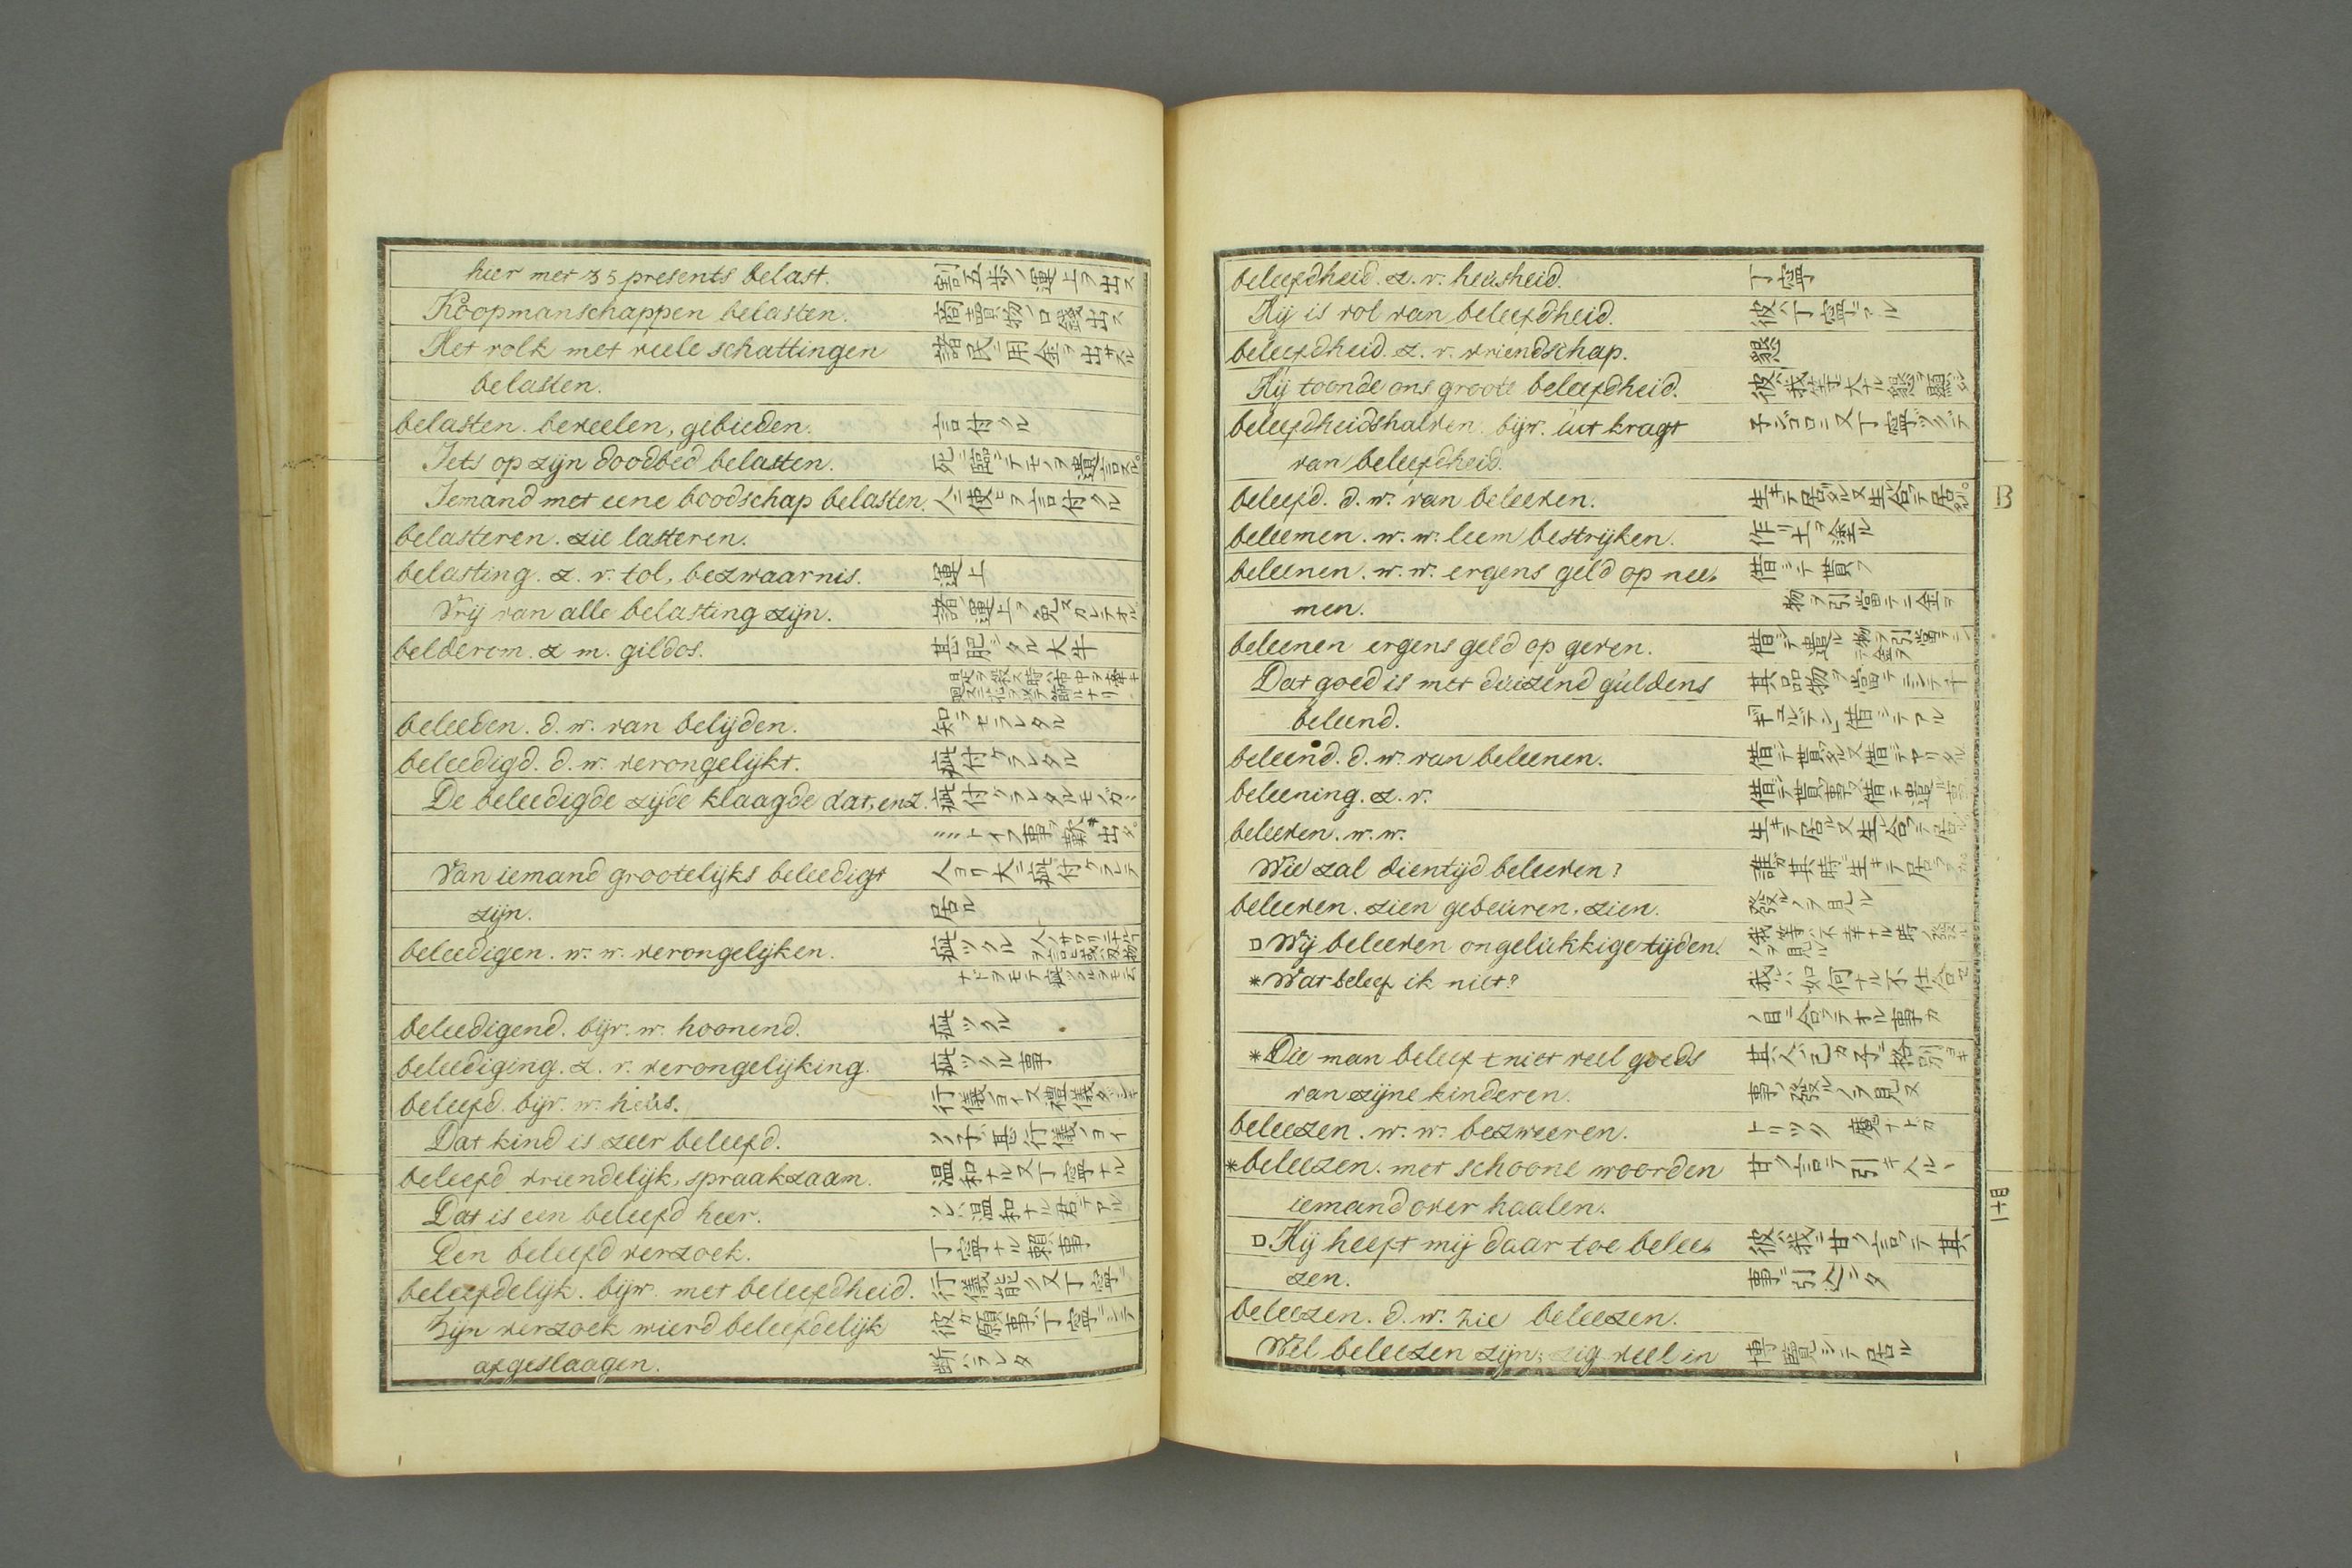 heer met 35 presents belast. 割五歩ノ運上ヲ出ス
Koopmanschappen belasten.
Het volk met veele schattingen 諸民ニ用金ヲ出サスル
belasten.
belasten. beveelen, gebieden. 言付クル
Iets op zijn doodbed belasten. 死ニ臨ンテモノヲ遺言スル。
Iemand met eene boodschap belasten. 人ニ使ヒヲ言付クル
belasteren. zie lasteren.
belasting. z. v. tol, bezwaarnis. 運上
Vrij van alle belasting zijn. 諸運上ヲ免スカレテオル
belderom. z m. gildos. 甚肥シタル大牛
beleeden. d. w. van belijden. 知ラセラレタル
beleedigd. d. w. verongelijkt. 疵付ケラレタル
De beleedigde zijde klaagde dat, enz. 疵付ケラレタルモノガ
トイフ事ヲ歎キ出タ。
Van iemand grootelijks beleedigt 人ヨリ大ニ疵付ケラレテ
zijn. 居ル
beleedigen. w. w. verongelijken. 疵ツクル
beleedigend. bijv. w. hoonend. 疵ツクル
beleediging. z. v. verongelijking. 疵ツクル事
beleefd. bijv. w. heus.
Dat kind is zeer beleefd. ソノ子ハ甚行儀ノヨイ
beleefd vriendelijk, spraakzaam. 温和ナル又丁寧ナル
Dat is een beleefd heer. ソレハ温和ナル君テアル
Een beleefd verzoek. 丁寧ナル頼事
beleefdelijk. bijw. met beleefdheid. 行儀能ク又丁寧ニ
Zijn verzoek wierd beleefdelijk 彼ガ願事ハ丁寧ニシテ
afgeslaagen. 断ハラレタ
beleefdheid. z. v. heusheid. 丁寧
Hij is vol van beleefdheid. 彼ハ丁寧テアル
beleefdheid. z. v. vriendschap. 懇
Hij toonde ons groote beleefdheid.
beleefdheidshalven. bijw. uit kragt
van beleefdheid.
beleefd. d. w. van beleeven.
B
beleemen. w. w. leem bestrijken. 作リ土ヲ塗ル
beleenen. w. w. ergens geld op nee- 借シテ貰フ
men. 物ヲ引當テニ金ヲ
beleenen ergens geld op geven.
Dat goed is met duizend guldens 其品物ヲ當テニシテ千
beleend. ギュルデン借シテアル
beleend. d. w. van beleenen.
beleening. z. v.
beleeven. w. w.
Wie zal dientijd beleeven?
beleeven. zien gebeuren, zien. 發ルノヲ見ル
Wij beleeven ongelukkige tijden.
*Wat beleef ik niet? 我ハ如何ナル不仕合セ
ノ目ニ合フテオル事カ
*Die man beleeft niet veel goeds
van zijne kinderen. 事ノ發ルノヲ見ヌ
beleezen. w. w. bezweeren.
*beleezen. met schoone woorden 甘ク言テ引キ入ル丶
iemand over haalen.
十四
Hij heeft mij daar toe belee- 彼ハ我ニ甘ク言フテ其
zen. 事ニ引入レタ
beleezen. d. w. zie beleezen.
Wel beleezen zijn; zig veel in 博覽シテ居ル